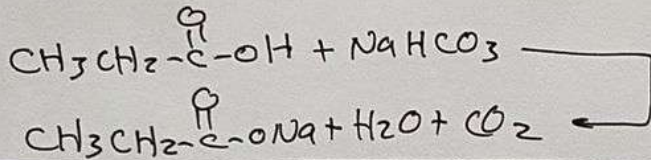 O
CH3CH2-C-OH + NaHCO3
O
CH3CH2-C-ONa + H2O + CO2